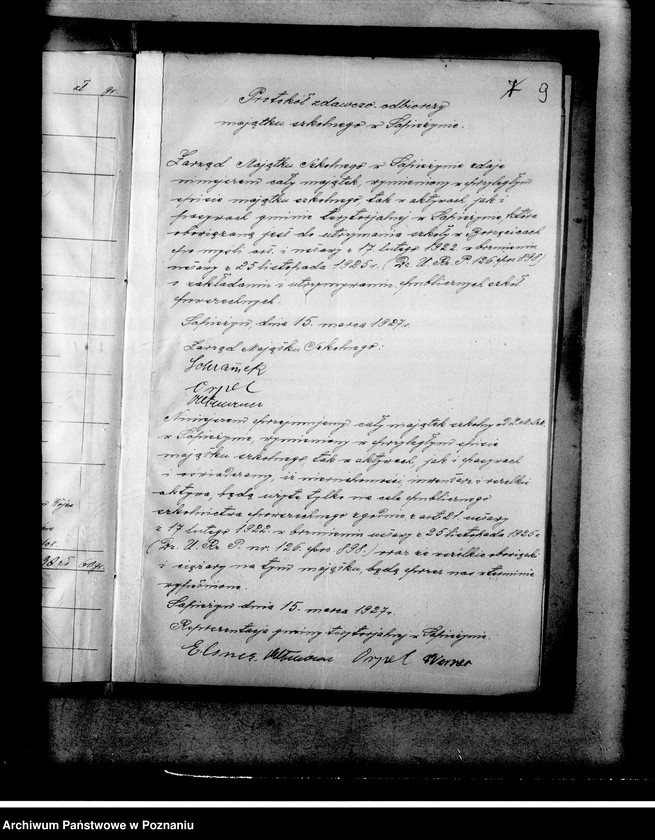 zł gr.
7 9
Protokół zdawczo-odbiorczy
majątku szkolnego w Sapieżynie.
Zarząd Majątku Szkolnego w Sapieżynie zdaje
niniejszem cały majątek, wymieniony w przyległym
spisie majątku szkolnego, tak w aktywach, jak i
pasywach gminie terytorjalnej w Sapieżynie, która
obowiązaną jest do utrzymania szkoły w Borzęcicach
po myśli art. 1 ustawy z 17 lutego 1922 w brzmieniu
ustawy z 25 listopada 1925 r. (Dz. U. Rz. P. 126 poz. 898)
o zakładaniu i utrzymywaniu publicznych szkół
powszechnych.
Sapieżyn, dnia 15. marca 1927 r.
Zarząd Majątku Szkolnego:
Schramek
Orpel
Niniejszem przejmujemy cały majątek szkolny od
w Sapieżynie, wymieniony w przyległym spisie
majątku szkolnego tak w aktywach, jak i pasywach
i oświadczamy, iż nieruchomości, inwentarz i wszelkie
aktywa, będą użyte tylko na cele publicznego
szkolnictwa powszechnego zgodnie z art. 21 ustawy
z 17 lutego 1922 w brzmieniu ustawy z 25 listopada 1925 r.
(Dz. U. Rz. P. nr. 126. poz. 898.) oraz że wszelkie obowiązki
i ciężary na tym majątku, będą przez nas w terminie
wypełnione.
Sapieżyn dnia 15. marca 1927 r.
Reprezentacja gminy terytorjalnej w Sapieżynie.
Elsner. Orpel Werner
Archiwum Państwowe w Poznaniu